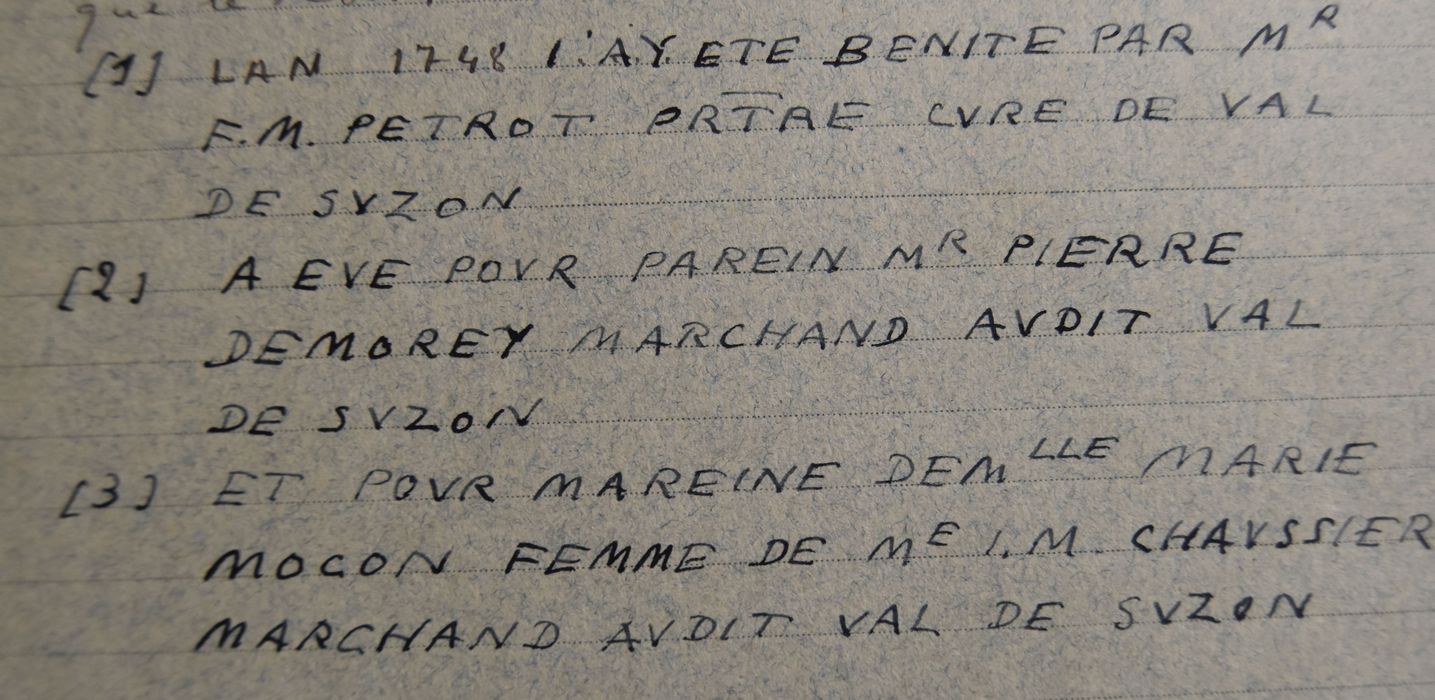 que le
[1] LAN 1748 I'AY ETE BENITE PAR Mᴿ
F.M. PETROT PRT̅RE CVRE DE VAL
DE SVZON
[2] A EVE POVR PAREIN Mᴿ PIERRE
DEMOREY MARCHAND AVDIT VAL
DE SVZON
[3] ET POVR MAREINE DEMᴸᴸᴱ MARIE
MOCON FEMME DE Mᴱ I.M. CHAVSSIER
MARCHAND AVDIT VAL DE SVZON